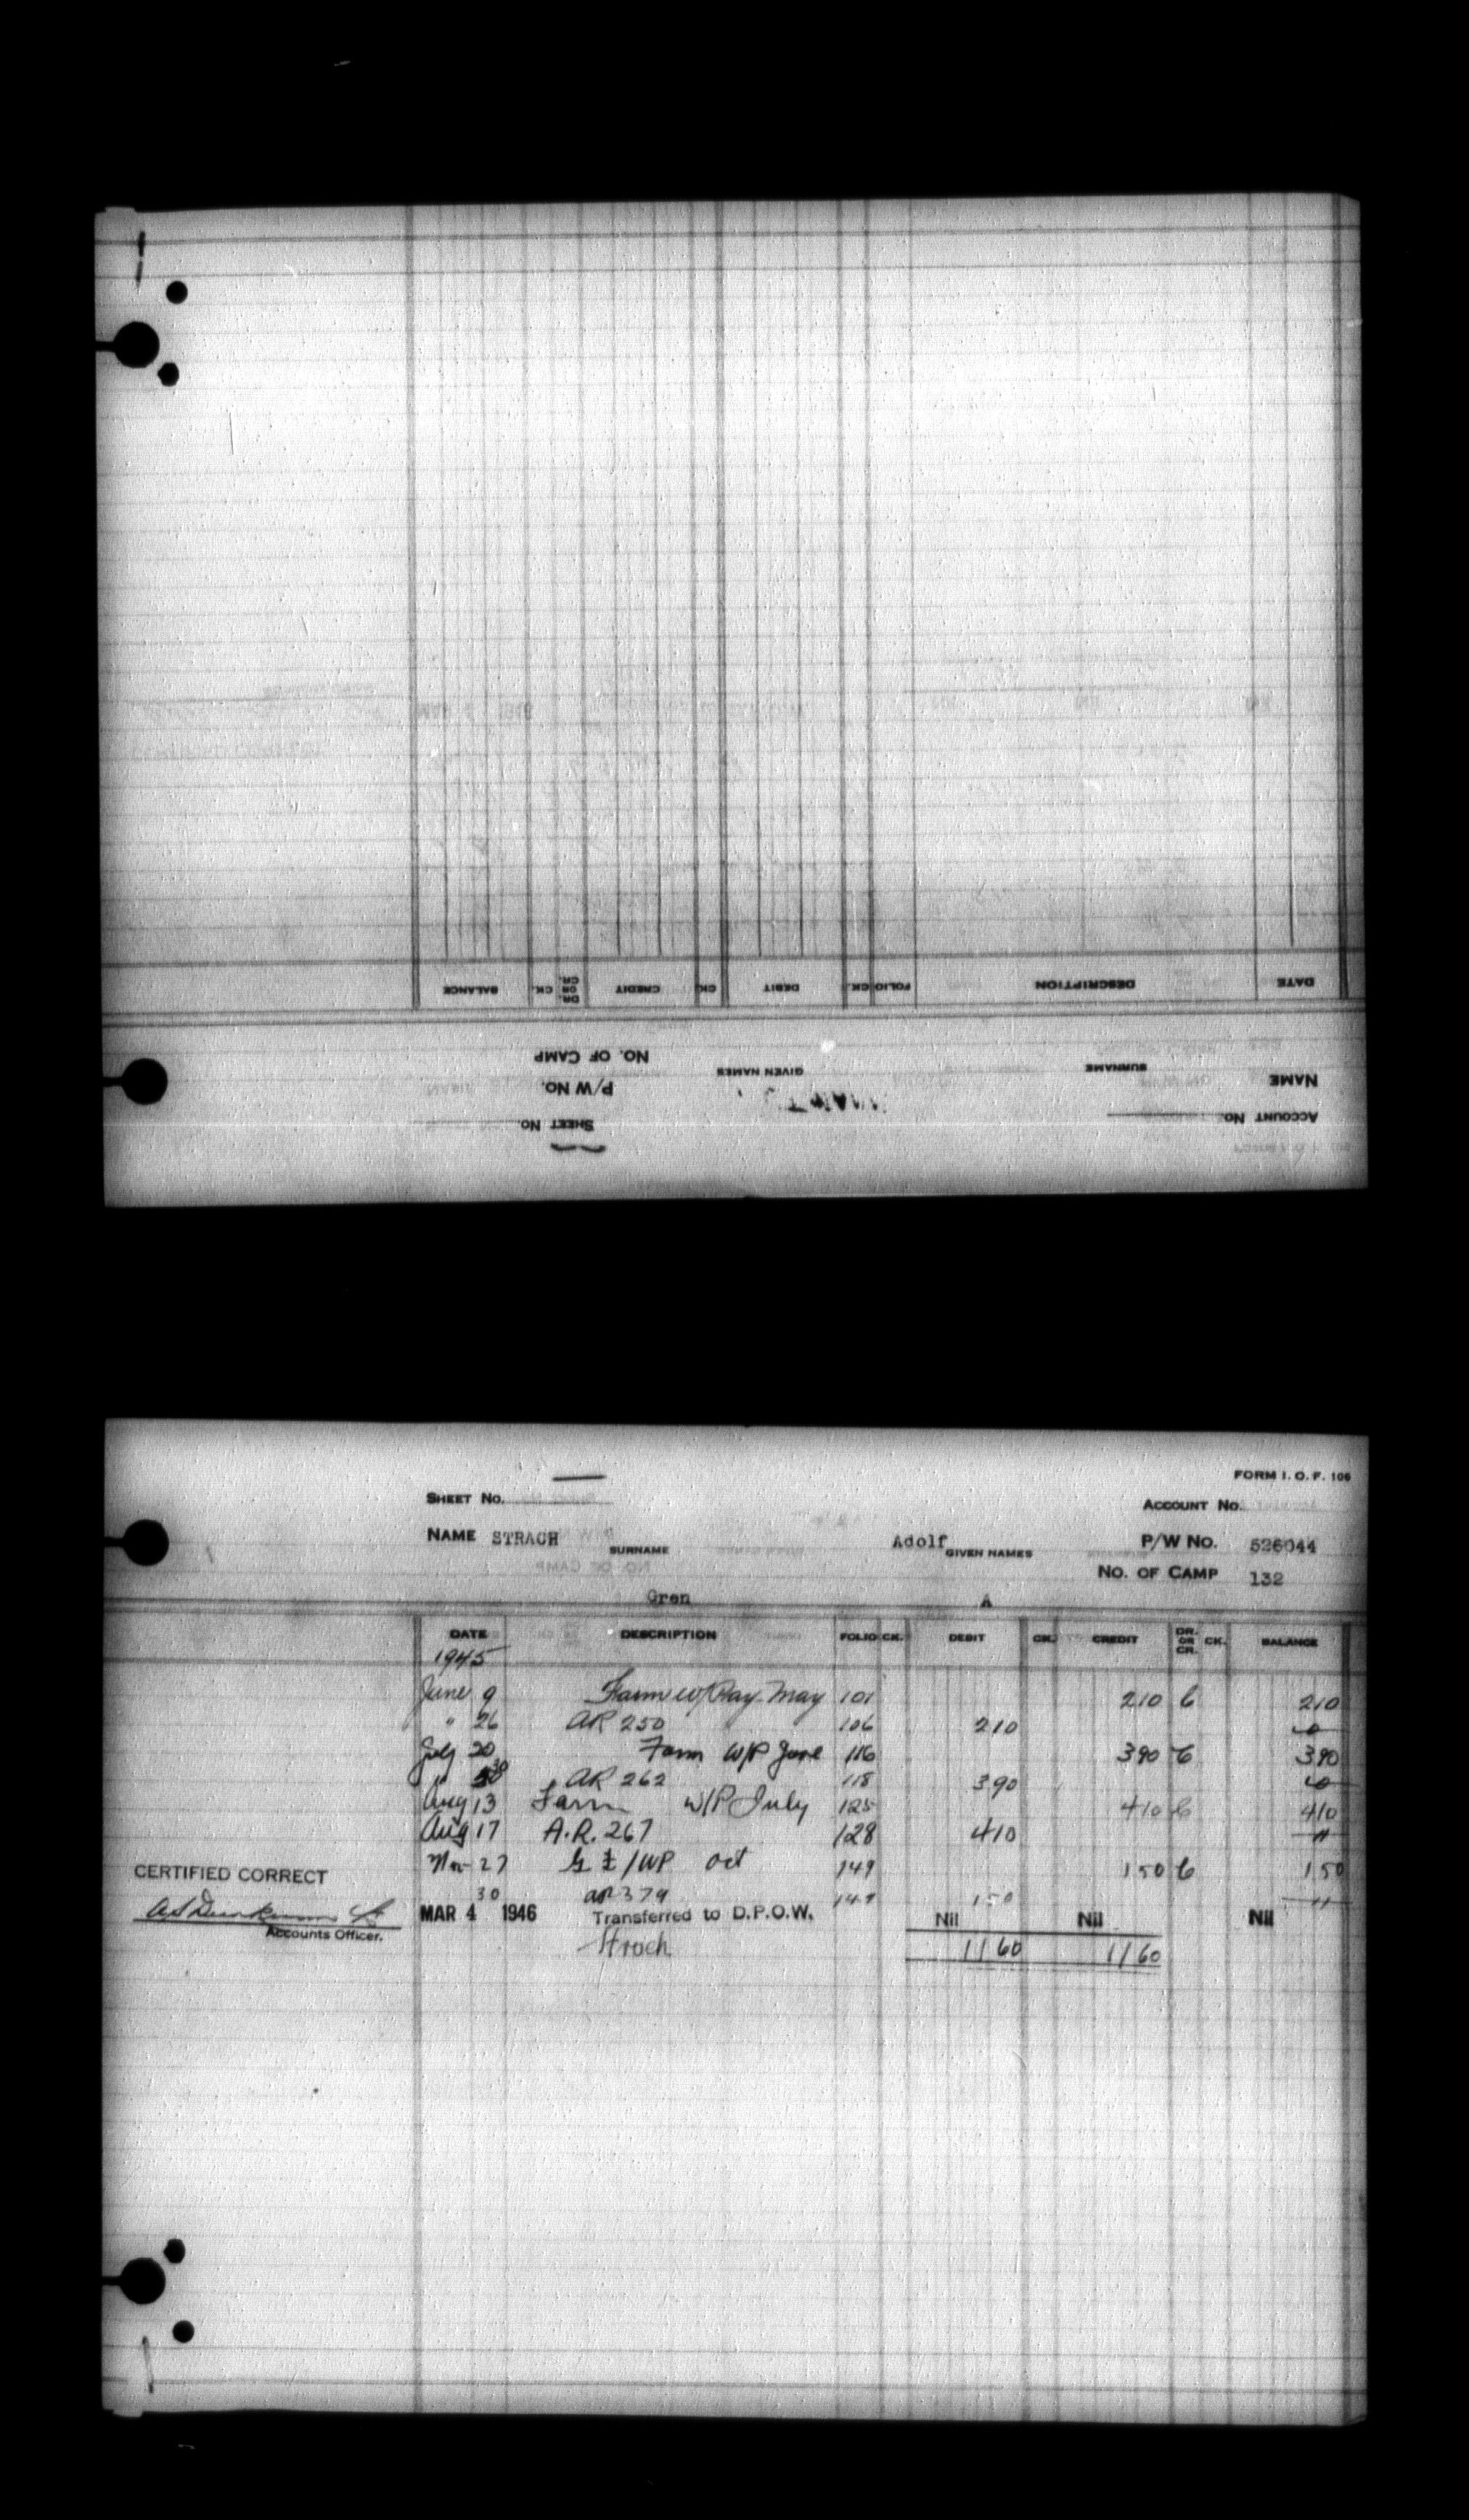 BALANCE CK. DR. OR CR. CREDIT CK. DEBIT CK. FOLIO DESCRIPTION DATE
NO. OF CAMP
GIVEN NAMES SURNAME
P/W NO. NAME
SHEET NO. ACCOUNT NO.
FORM I. O. F. 106
SHEET NO. ACCOUNT NO.
NAME STRACH SURNAME Adolf GIVEN NAMES P/W NO. 526044
NO. OF CAMP 132
Gren A
DATE DESCRIPTION FOLIO CK. DEBIT CK. CREDIT DR. OR CR. CK. BALANCE
1945
June 9 Farm w/Pay May 101 210 C 210
" 26 AR 250 106 210 0
July 20 Farm W/P June 116 390 C 390
" 30 AR 262 118 390 0
Aug 13 Farm W/P July 125 410 C 410
Aug 17 A.R. 267 128 410 "
Nov 27 /WP Oct 149 150 C 150
30 AR 379 149 150 "
CERTIFIED CORRECT
MAR 4 1946 Transferred to D.P.O.W. Nil Nil Nil
Accounts Officer.
Strach 11 60 11 60